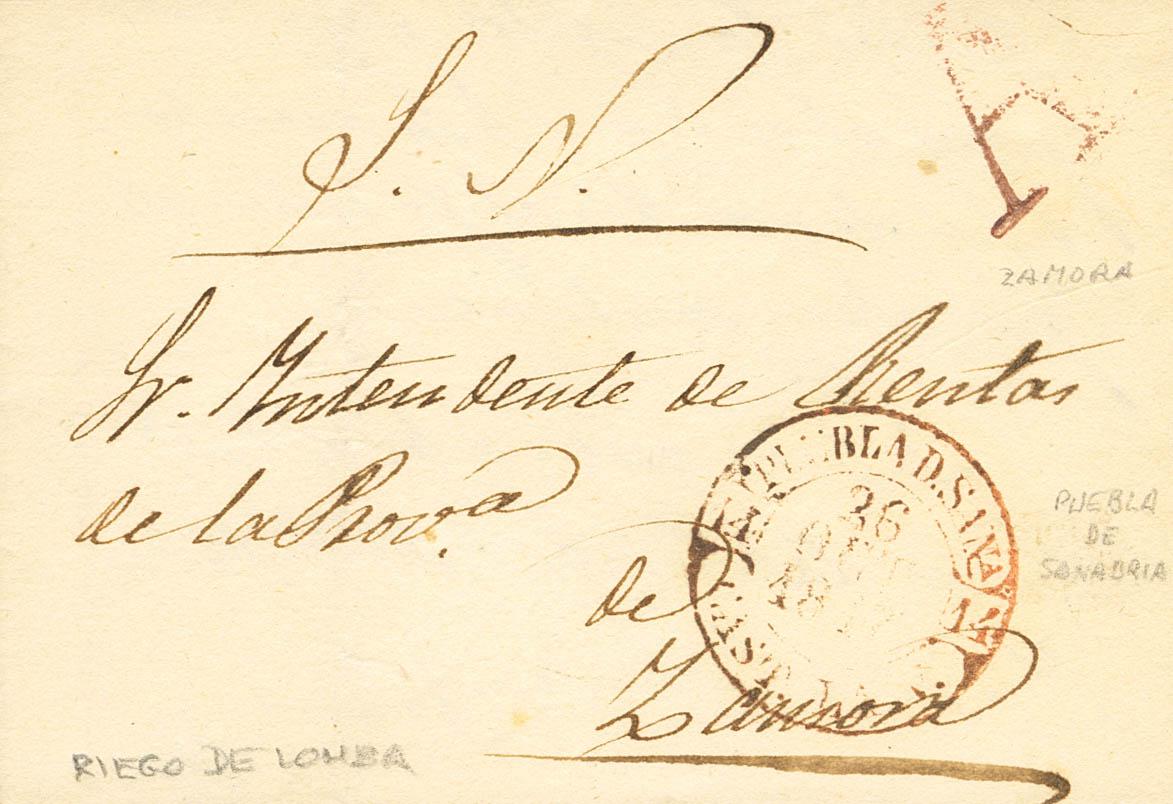 S. N.
A
ZAMORA
Sr. Intendente de Rentas
de la Prov.ª
de
Zamora
PUEBLA D. SANA.
26
18
PUEBLA
DE
SANABRIA
RIEGO DE LOMBA